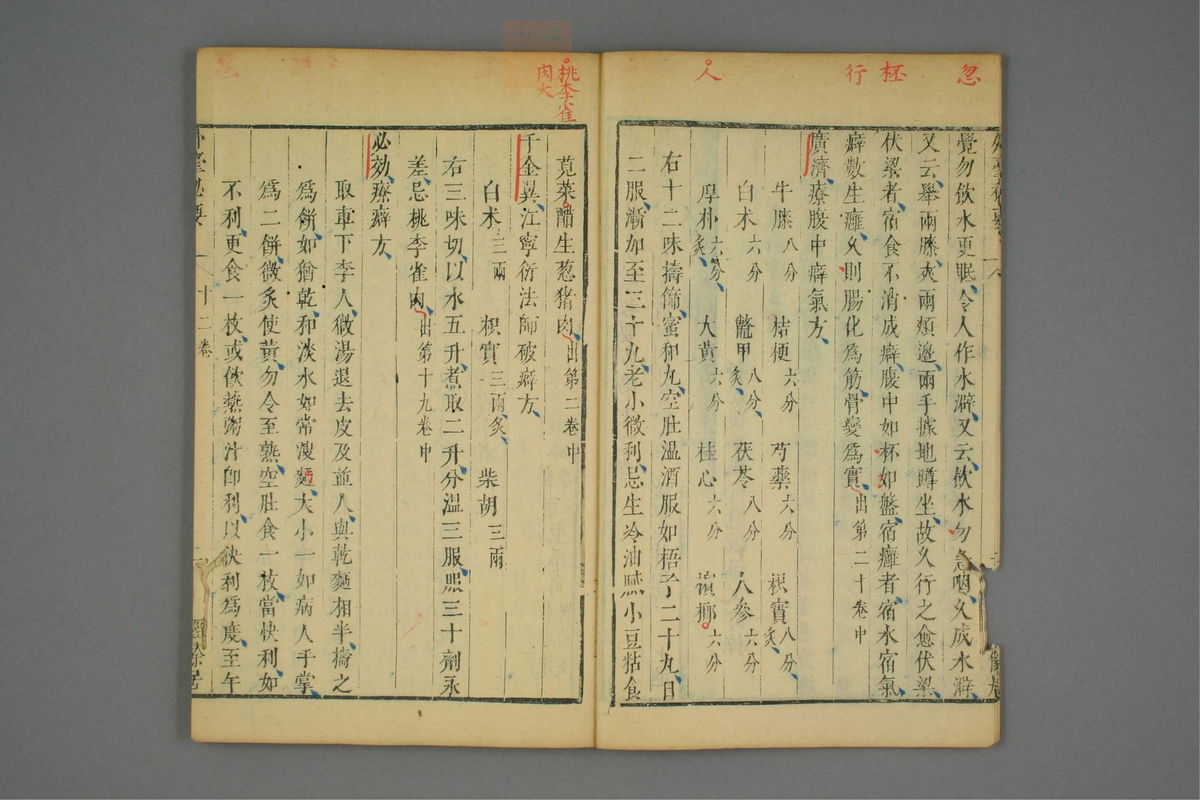 忽
柸
行
人
覺勿飲水更眠令人作水澼又云飲水勿急咽久成水澼
又云舉兩膝夾兩頰邊兩手據地蹲坐故久行之愈伏梁
伏梁者宿食不消成癖腹中如杯如盤宿癰者宿水宿氣
癖數生癰久則腸化爲筋骨變爲實出第二十卷中
廣濟療腹中癖氣方
牛膝八分 桔梗六分 芍藥六分 枳實八分炙
白术六分 鼈甲八分炙 茯苓八分 人參六分
厚朴六分炙 大黄六分 桂心六分 檳榔六分
右十二味擣篩蜜和丸空肚温酒服如梧子二十丸日
二服漸加至三十丸老小微利忌生冷油膩小豆粘食
桃李雀
肉大
莧菜醋生葱猪肉出第二卷中
千金翼江寧衍法師破癖方
白术三兩 枳實三兩炙 柴胡三兩
右三味切以水五升煮取二升分温三服服三十劑永
差忌桃李雀肉出第十九卷中
必効療癖方
取車下李人微湯退去皮及並人與乾麵相半擣之
爲餅如猶乾和淡水如常溲麵大小一如病人手掌
爲二餅微炙使黄勿令至熟空肚食一枚當快利如
不利更食一枚或飲熱粥汁即利以快利爲度至午
十二卷